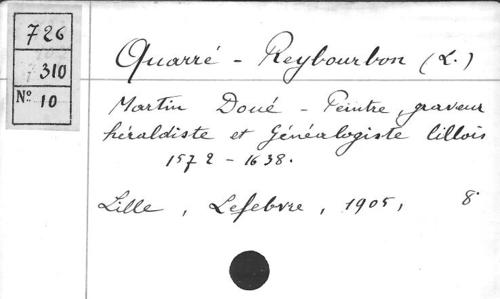 726
310
No 10
Quarré - Reybourbon (L.)
Martin Doué - Peintre, graveur
héraldiste et généalogiste lillois
1572 - 1638.
Lille, Lefebvre, 1905, 8°